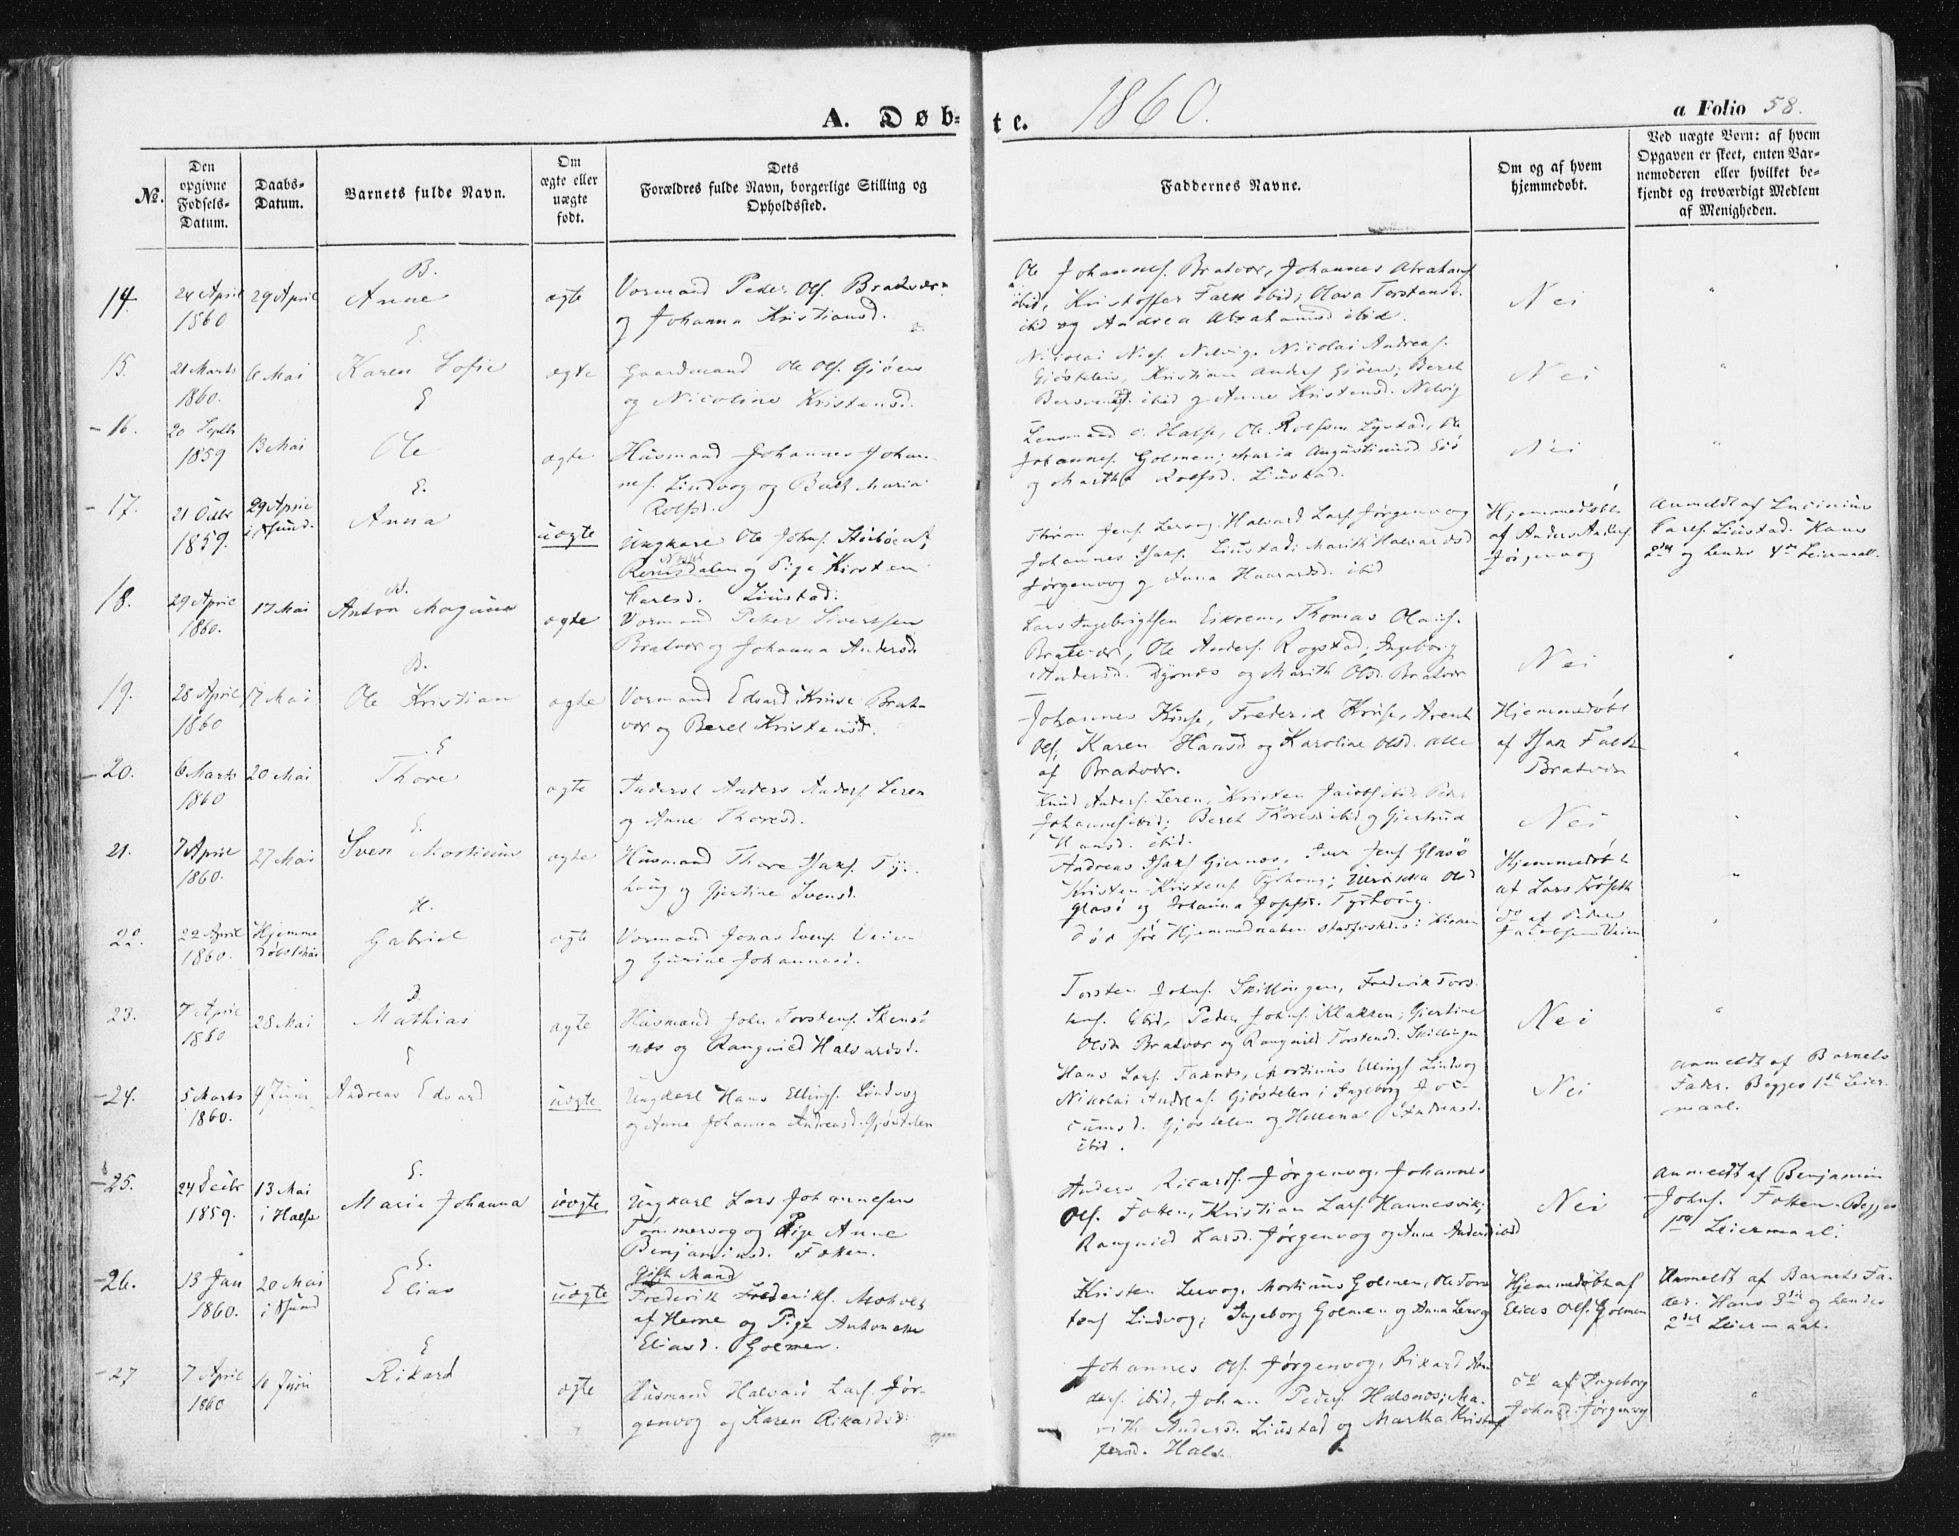 A. Døb=
te.
1860.
a Folio 58.
№.
Den opgivne Fødsels-Datum.
Daabs-Datum.
Barnets fulde Navn.
Om ægte eller uægte født.
Dets Forældres fulde Navn, borgerlige Stilling og Opholdssted.
Faddernes Navne.
Om og af hvem hjemmedøbt.
Ved uægte Born: af hvem Opgaven er skeet, enten Barnemoderen eller hvilket bekjendt og troværdigt Medlem af Menigheden.
B.
14. 24 April 1860 29 April Anne ægte
Vormand Peder Ols. Bratvær
og Johanna Kristiansd.
Ole Johannes. Bratvær, Johannes Abrahams
ibid, Kristoffer Falk ibid; Olava Torstensd.
ibid og Andrea Abrahamsd ibid.
Nei "
E.
15. 21 Marts 1860. 6 Mai Karen Sofie ægte
Gaardmand Ole Ols. Gjøen
og Nicoline Kristensd.
Nicolai Niels. Nelvig, Nicolai Andreas.
Gjøstelen, Kristian Anders Gjøen; Beret
ibid og Anne Kristensd. Nelvig
Nei "
E
16. 20 Septbr 1859 13 Mai Ole ægte
Husmand Johannes Johan-
nes. Lindvog og Beret Maria
Rolfsd.
Lensmand Halse, Ole Rolfsen Lystad, Ole
Johannes. Golmen; Maria Augustinusd
og Marth Rolfsd. Liustad.
Nei "
E.
17. 21 Octbr 1859. 29 April i Asund. Anna uægte
Ungkarl Ole Johns.
Romsdalen og Pige Kirsten
Carlsd. Liustad.
Jens. Lervog, Halvard Lars. Jørgenvog
Johannes Isaks. Liustad; Marith Halvardsd
Jørgenvog og Anna Haavardsd. ibid
Hjemmedøbt
af Anders Anders.
Jørgenvog
Anmeldt af
Carls. Liustad. Hans
2det og hendes 4de Leiermaal.
18. 29 April 1860. 17 Mai Anton Magnus ægte
Vormand Peter Sivertsen
Bratvær og Johanna Andersd.
Lars Ingebrigtsen Eikrem, Thomas Olaus.
Bratvær, Ole Anders. Rogstad; Ingeborg
Andersd. Dyrnes og Marith Olsd. Bratvær
Nei "
B.
19. 28 April 1860 17 Mai Ole Kristian ægte
Vormand Edvard Kruse Brat-
vær og Beret Kristensd.
Johannes Kruse, Frederik Kruse, Arent
Ols, Karen Hansd og Karoline Olsd. alle
af Bratvær.
Hjemmedøbt
af Isak Falk
Bratvær
"
E
20. 6 Marts 1860 20 Mai Thore ægte
Inderst Anders Anders. Leren
og Anne Thoresd.
Knud Anders. Leren, Kristen Jacobs ibid, Peder
Johannes ibid; Beret Thoresd ibid og Gjertrud
Hansd. ibid.
Nei "
E.
21. 7 April 1860. 27 Mai Sven Mortinus ægte
Husmand Thore Isaks. Ty-
houg og Gjertine Svensd.
Andreas Isaks Gjernes, Iver Jens Glasø
Kristen Kristens. Tyrhoug; Olsd
Glasø og Johanna Josefsd. Tyrhoug.
Hjemmedøbt
af Lars
"
H.
22. 22 April 1860. Hjemme døbt Gabriel ægte
Vormand Jonas Evens. Veien
og Gurine Johannesd.
død før Hjemmedaaben stadfæstedes i Kirken
do af Peder
Jacobsen Veien
"
B
23. 7 April 1860 28 Mai Mathias ægte
Husmand John Torstens. Stensø
nes og Rangnild Halvardsd.
Torsten Johns. Skillingen, Frederik Tors
tens. ibid, Peder Johns. Klakken; Gjertine
Olsd. Bratvær og Rangnild Torstensd. Skillingen
Nei "
E
24. 5 Marts 1860. 4 Juni Andreas Edvard uægte
Ungkarl Hans Ellings. Lindvog
og Anne Johanna Andreasd. Gjøstelen
Hans Lars. Taknes, Mortinus Ellings Lindvog
Nikolai Andreas. Gjøstelen; Ingeborg Joc-
cumsd. Gjøstelen og Hellena Andreasd.
ibid.
Nei
Anmeldt af Barnets
Fader. Begges 1ste Leier-
maal.
E.
25. 24 Decbr 1859. 13 Mai i Halse Marie Johanna uægte
Ungkarl Lars Johannesen
Tømmervog og Pige Anne
Benjaminsd. Foken.
Anders Ricards. Jørgenvog, Johannes
Ols. Foken, Kristian Lars. Hannesvik;
Rangnild Larsd. Jørgenvog og Anne Andersd ibid
Nei
Anmeldt af Benjamin
Johns. Foken. Begges
1ste Leiermaal.
E.
26. 13 Jan 1860. 20 Mai i Asund Elias uægte
Gift Mand
Frederik Frederiks.
af Hevne og Pige Antonette
Eliasd. Golmen.
Kristen Lervog, Mortinus Golmen, Ole Tors
tens Lindvog; Ingeborg Golmen og Anna Lervog
Hjemmedøbt af
Elias Ols. Golmen
Anmeldt af Barnets Fa-
der. Hans 3die og hendes
2det Leiermaal.
E
27 7 April 1860 10 Juni Rikard ægte
Husmand Halvard Lars. Jør-
genvog og Karen Rikardsd.
Johannes Ols. Jørgenvog, Rikard An-
ders. ibid, Johan Peders. Halsnes; Ma-
rith Andersd. Liustad og Martha Kristof
fersd. Hals.
do af Ingeborg
Johnsd. Jørgenvog
"